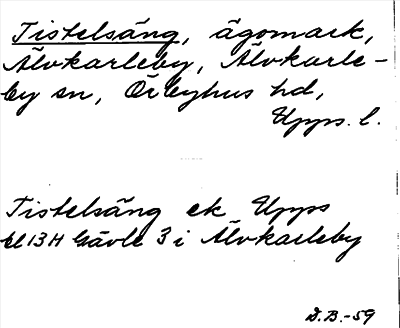 Tistelsäng, ägomark,
Älvkarleby, Älvkarle-
by sn, Örbyhus hd,
Upps. l.
Tistelsäng ek Upps
bl 13H Gävle 3 i Älvkarleby
D.B.-59